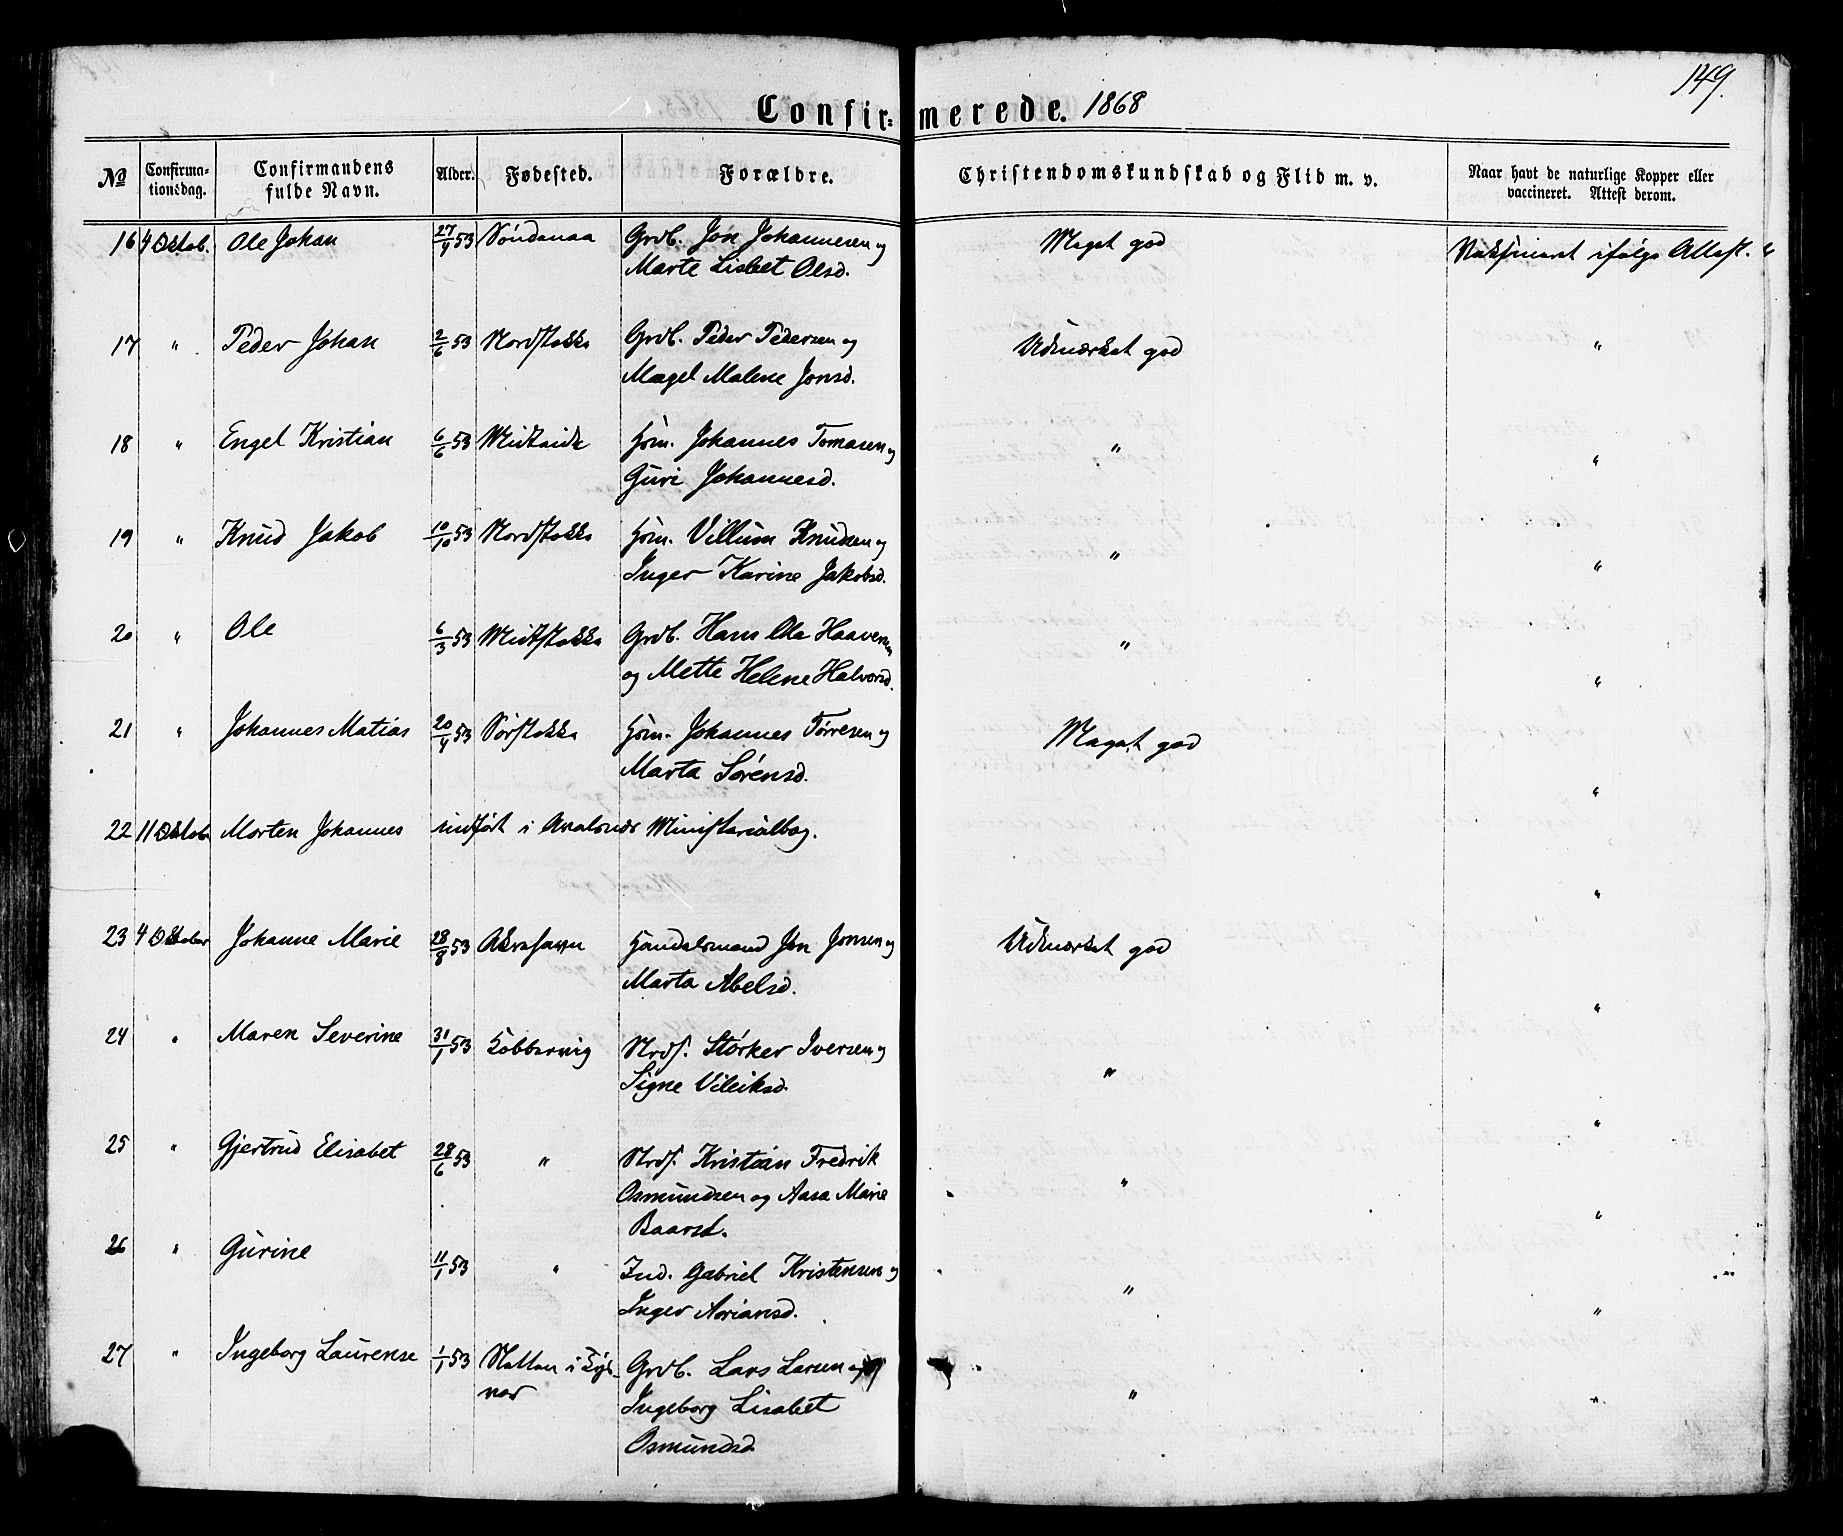 149.
Confirmerede. 1868
No
Confirmationsdag.
Confirmandens fulde Navn.
Alder.
Fødested.
Forældre.
Christendomskundskab og Flid m. v.
Naar havt de naturlige Kopper eller vaccineret. Attest derom.
16 4 Oktob. Ole Johan 27/4 53 Søndenaa Grdb. Jon Johannesen og Meget god Vaksineret ifølge Attest. "
Marte Lisbet Olsd.
17 " Peder Johan 2/6 53 Nordstokke Grdb. Peder Pedersen og Udmærket god "
Magel Malene Jonsd.
18 " Engel Kristian 6/6 53 Husm. Johannes Tomasen og " "
Guri Johannesd.
19 " Knud Jakob 10/10 53 Nordstokke Husm. Villum Knudsen og " "
Inger Karine Jakobsd.
20 " Ole 6/3 53 Midtstokke Grdb. Hans Ole Haavesen " "
og Mette Helene Halvorsd.
21 " Johannes Matias 20/4 53 Sørstokke Husm. Johannes Tørresen og Meget god "
Marta Sørensd.
22 11 Oktob Morten Johannes indført i Avalsnes Ministerialbog. "
23 4 Oktober Johanne Marie 28/8 53 Akrehavn Handelsmand Jon Jonsen og Udmærket god "
Marta Abelsd.
24 " Maren Severine 31/1 53 Kobbervig Strds. Størker Iversen og " "
Signe Vileiksd.
25 " Gjertrud Elisabet 28/6 53 " Strds. Kristian Fredrik " "
Osmundsen og Aasa Marie
Baarsd.
26 " Gurine 11/1 53 " Ind. Gabriel Kristensen og " "
Inger Adriansd.
27 " Ingeborg Laurense 1/1 53 i Grdb. Lars Larsen og " "
Ingeborg Lisabet
Osmundsd.